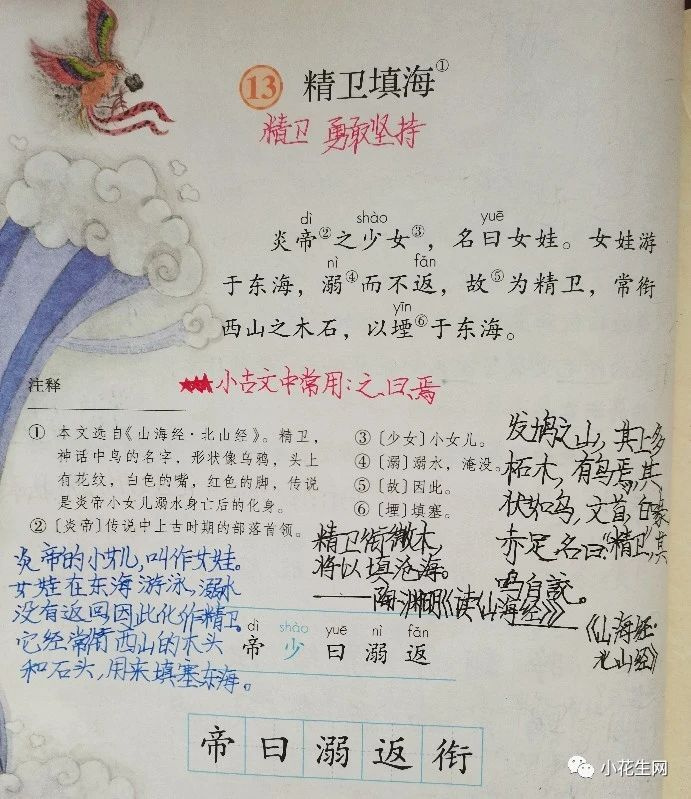 13 精卫填海①
精卫 勇敢坚持
dì shào yuē
炎帝②之少女③，名曰女娃。女娃游
nì fǎn
于东海，溺④而不返，故⑤为精卫，常衔
yīn
西山之木石，以堙⑥于东海。
注释
★★★小古文中常用：之、曰、焉
① 本文选自《山海经·北山经》。精卫，
神话中鸟的名字，形状像乌鸦，头上
有花纹，白色的嘴，红色的脚，传说
是炎帝小女儿溺水身亡后的化身。
②〔炎帝〕传说中上古时期的部落首领。
③〔少女〕小女儿。
④〔溺〕溺水，淹没。
⑤〔故〕因此。
⑥〔堙〕填塞。
发鸠之山，其上多
柘木，有鸟焉，其
状如乌，文首，白喙
赤足，名曰："精卫"，其
鸣自詨。
《山海经·
北山经》
精卫衔微木，
将以填沧海。
——陶渊明《读《山海经》》
炎帝的小女儿，叫作女娃。
女娃在东海游泳，溺水
没有返回，因此化作精卫。
它经常衔西山的木头
和石头，用来填塞东海。
dì shào yuē nì fǎn
帝 少 曰 溺 返
帝 曰 溺 返 衔
小花生网